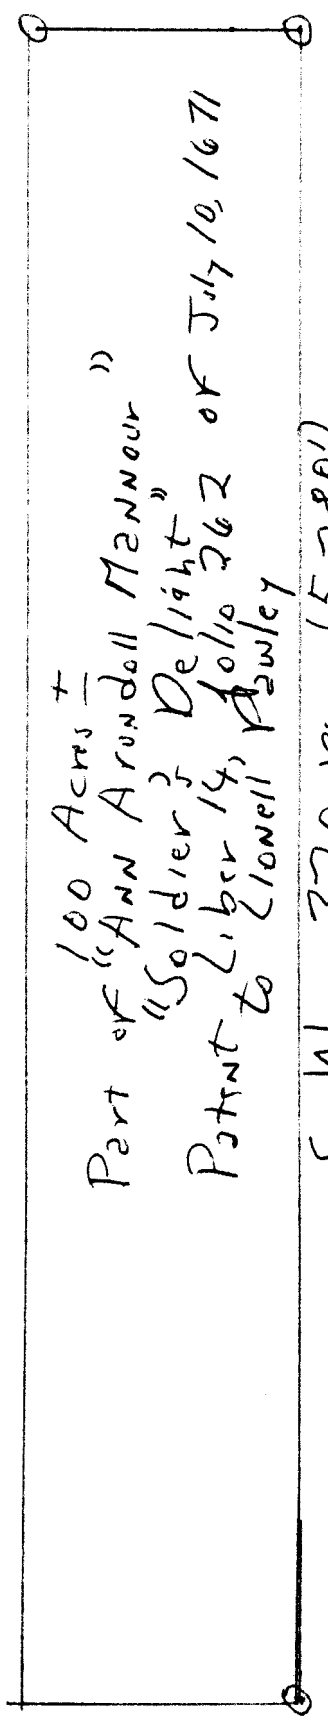 100 Acres ±
Part of "Ann Arundoll Mannour"
"Soldier's Delight"
Patent Liber 14, folio 262 of July 10, 1671
to Lionell Pawley